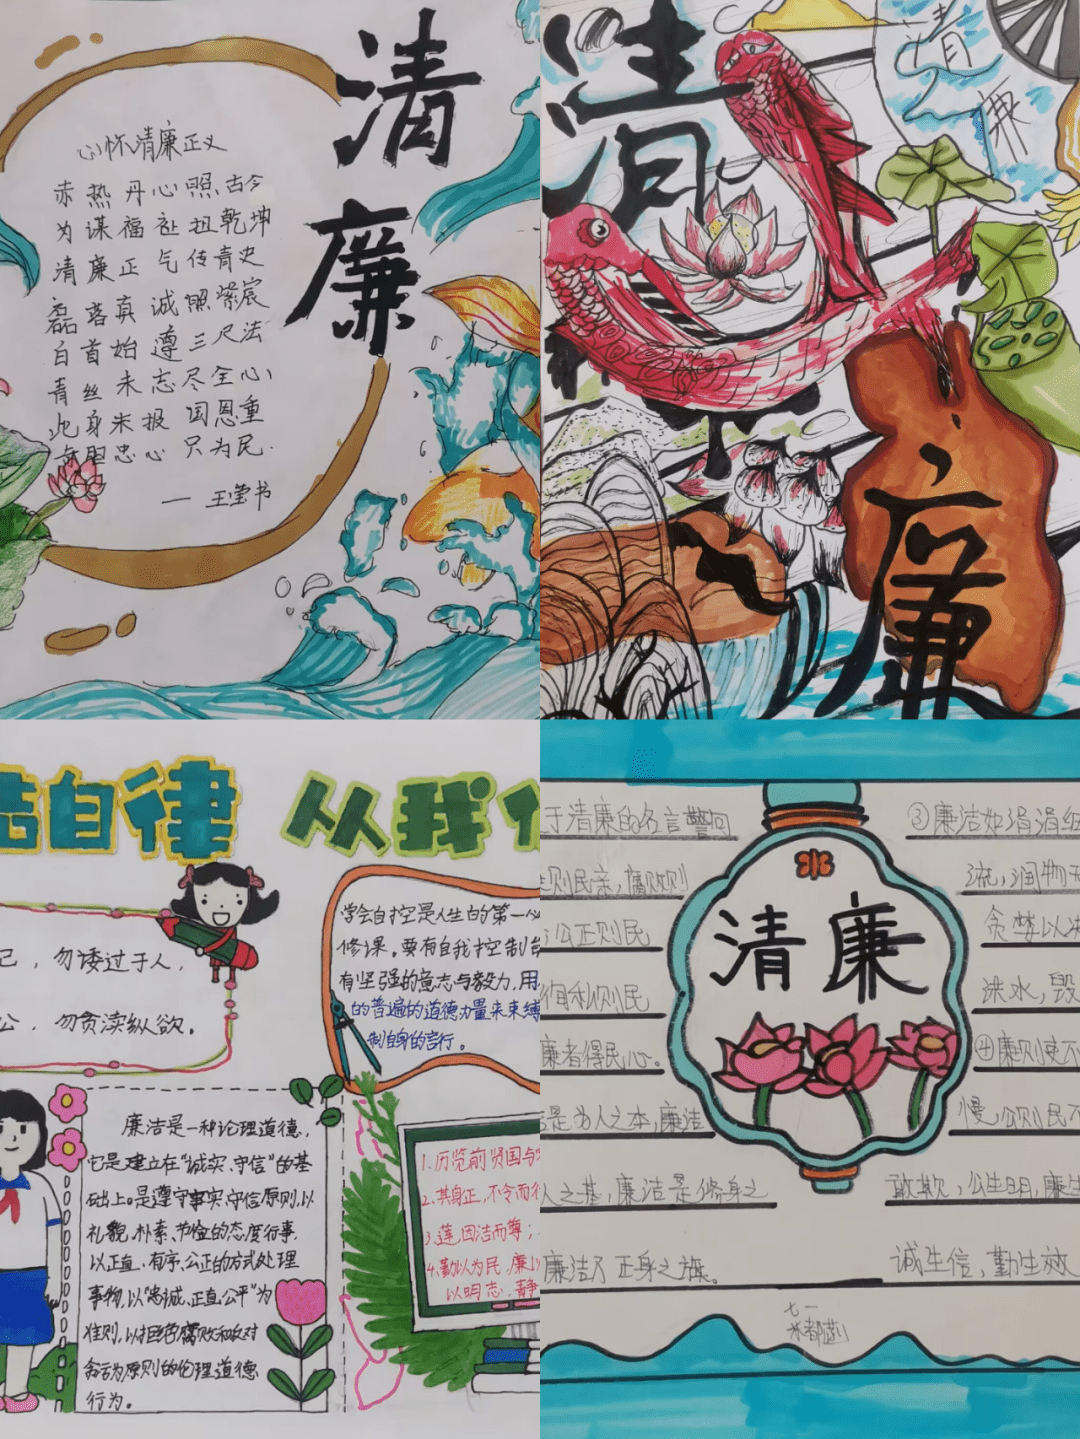 清
廉
心怀清廉正义
赤热丹心照古今
为谋福祉扭乾坤
清廉正气传青史
磊落真诚照紫宸
白首始遵三尺法
青丝未忘尽全心
此身未报国恩重
忠心只为民.
— 王莹书
清
清
廉
廉
洁自律 从我
己，勿诿过于人，
公，勿贪渎纵欲。
学会自控是人生的第一必
修课。要有自我控制能
有坚强的意志与毅力，用
的普遍的道德力量来束缚
制自身的言行。
廉洁是一种论理道德，
它是建立在"诚实、守信"的基
础上。是遵守事实、守信原则，以
礼貌、朴素、节俭的态度行事，
以正直、有序、公正的方式处理
事物，以"忠诚、正直、公平"为
准则，以拒绝腐败和反对
贪污为原则的伦理道德
行为。
1.历览前贤国与
2.其身正，不令而行
3.莲，因洁而尊；
4.勤以为民，廉以
以明志，静
于清廉的名言警句
则民亲，腐败则
公正则民
徇私则民
廉者得民心。
是为人之本，廉洁
人之基，廉洁是修身之
廉洁乃正身之源。
清廉
③廉洁如涓涓细
流，润物无
贪婪以洪
洪水，毁
④廉则吏不
慢，公则民不
敢欺，公生明，廉生
诚生信，勤生效
七一